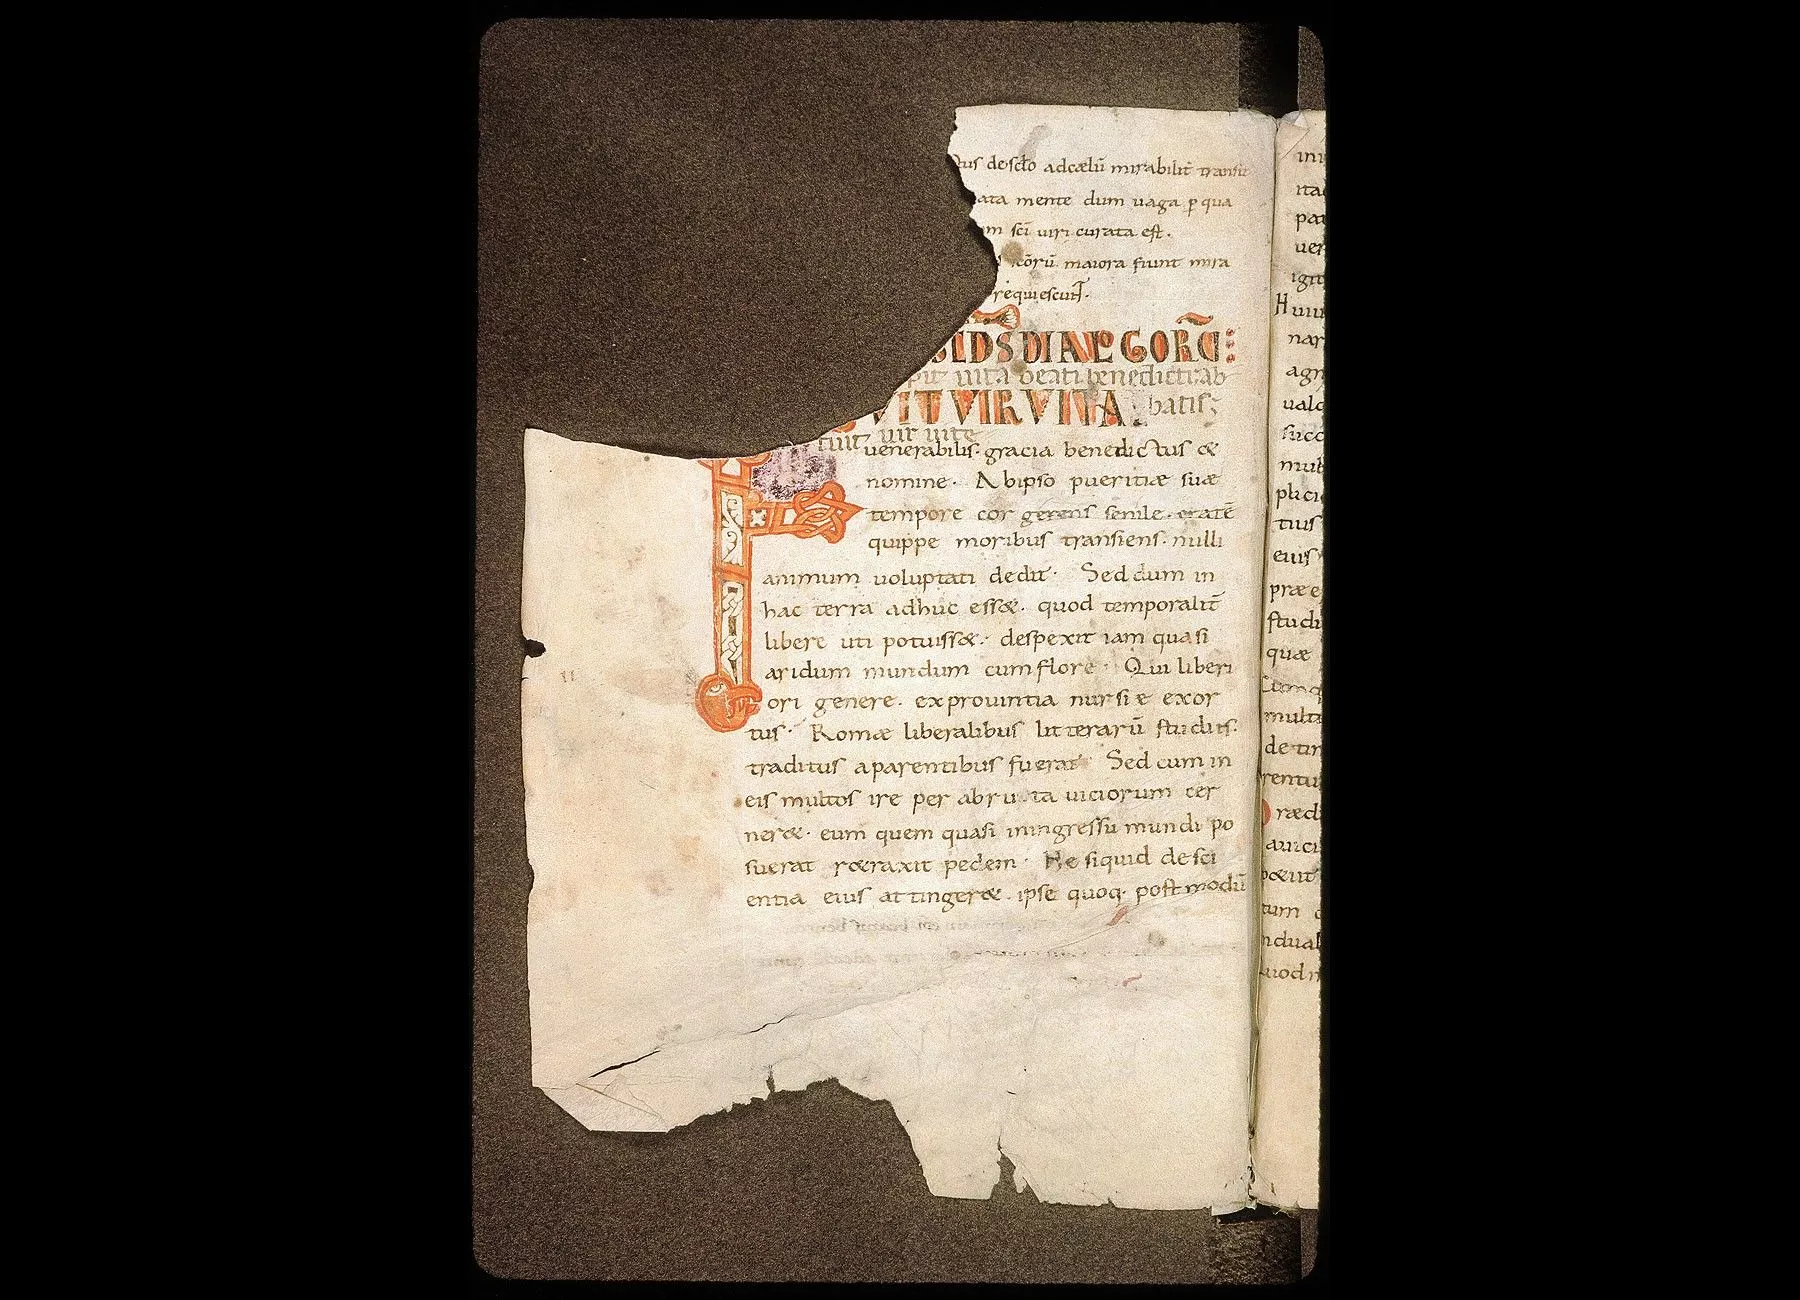 tus de scło ad cælū mirabilit̄ transit
ata mente dum uaga ꝑ qua
m scī uiri curata est.
corū maiora fiunt mira
requiescunt.
pit uita beati benedicti ab
VIT VIR VITA batis;
fuit uir uite
uenerabilis. gracia benedictus &
nomine. Ab ipso pueritiæ suæ
tempore cor gerens senile. &atē
quippe moribus transiens. nulli
animum uoluptati dedit. Sed dum in
hac terra adhuc ess&. quod temporalit̄
libere uti potuiss&. despexit iam quasi
aridum mundum cum flore. Qui liberi
ori genere. exprouintia nursiæ exor
tus. Romæ liberalibus litterarū studiis.
traditus aparentibus fuerat. Sed cum in
eis multos ire per abrupta uiciorum cer
ner&. eum quem quasi iningressu mundi po
suerat r&raxit pedem. Ne siquid de sci
entia eius attinger&. ipse quoq; postmodū
ita
pa
uer
igit
Huiu
nar
agn
ualc
succ
mul
plici
tius
eius
præe
studi
quæ
multa
rentu
ræd
tum
ndual
uod n